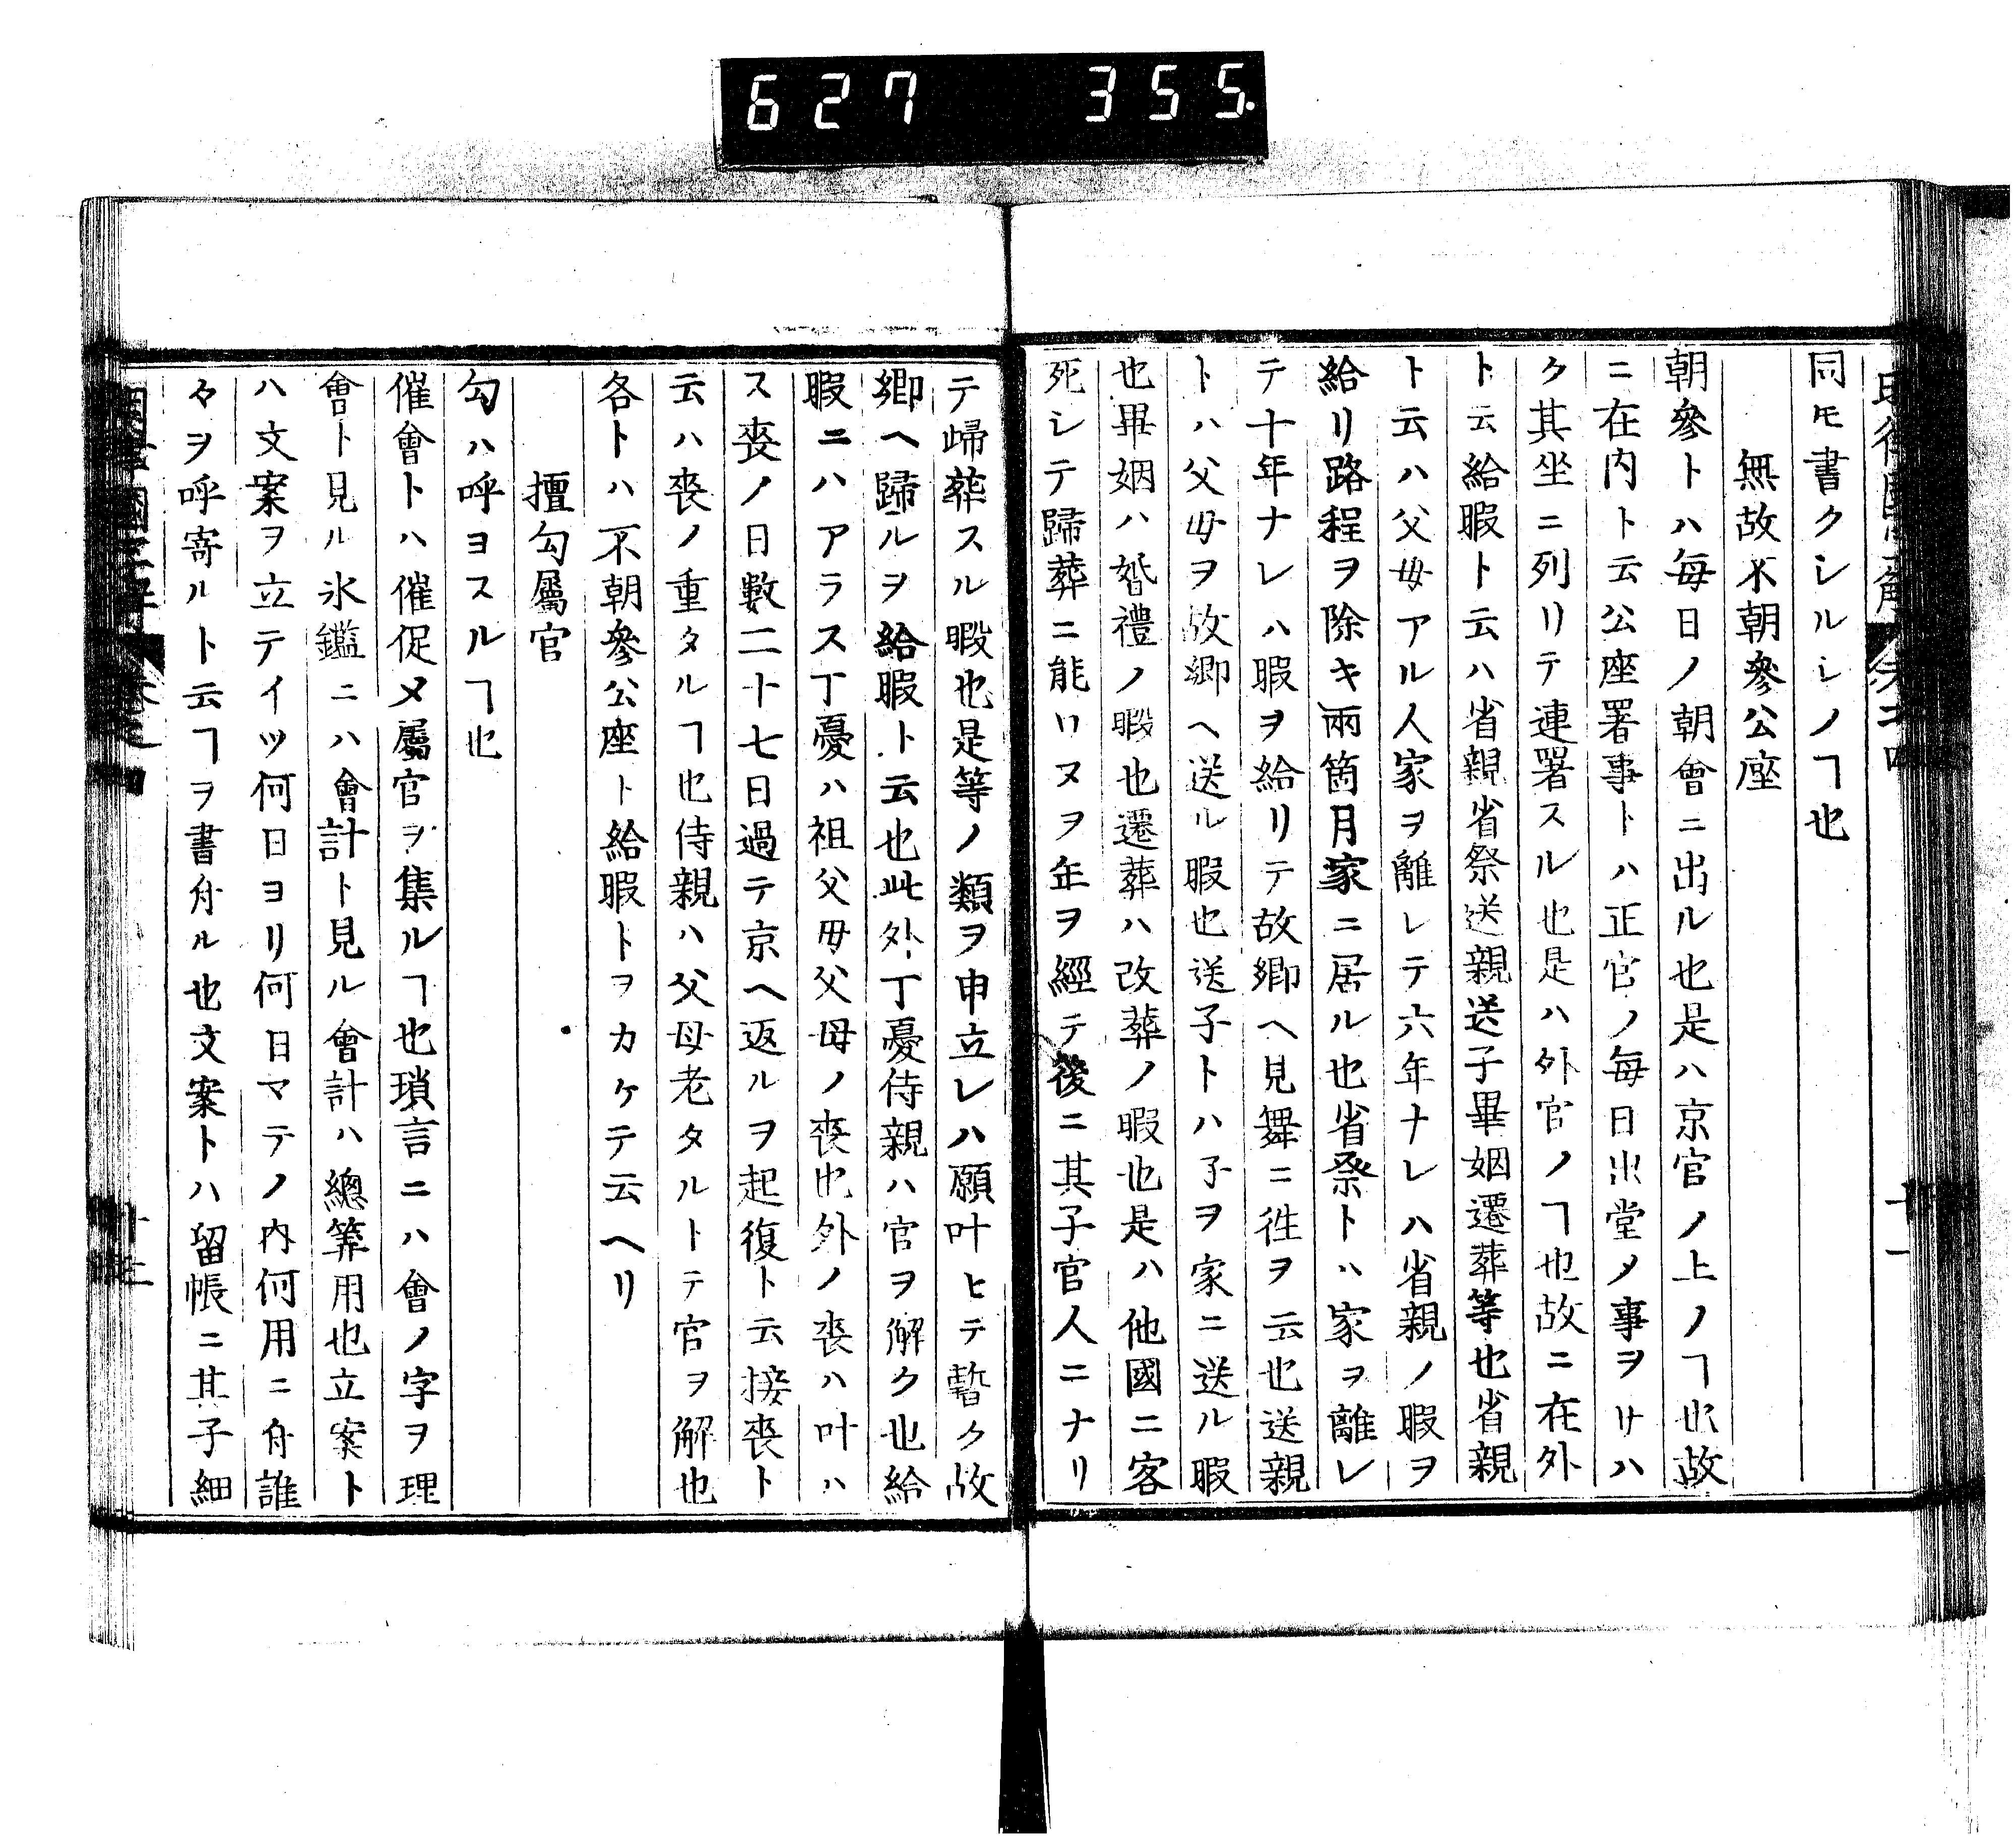 627 355.
同モ書クシルシノヿ也
無故不朝參公座
朝參トハ毎日ノ朝會ニ出ル也是ハ京官ノ上ノヿ也故
ニ在内ト云公座署事トハ正官ノ毎日出堂メ事ヲサハ
ク其坐ニ列リテ連署スル也是ハ外官ノヿ也故ニ在外
ト云給暇ト云ハ省親省祭送親送子畢姻遷葬等也省親
ト云ハ父母アル人家ヲ離レテ六年ナレハ省親ノ暇ヲ
給リ路程ヲ除キ兩箇月家ニ居ル也省祭トハ家ヲ離レ
テ十年ナレハ暇ヲ給リテ故郷ヘ見舞ニ徃ヲ云也送親
トハ父母ヲ故郷ヘ送ル暇也送子トハ子ヲ家ニ送ル暇
也畢姻ハ婚禮ノ暇也遷葬ハ改葬ノ暇也是ハ他國ニ客
死シテ歸葬ニ能ハヌヲ年ヲ經テ後ニ其子官人ニナリ
テ歸葬スル暇也是等ノ類ヲ申立レハ願叶ヒテ暫ク故
郷ヘ歸ルヲ給暇ト云也此外丁憂侍親ハ官ヲ解ク也給
暇ニハアラス丁憂ハ祖父母父母ノ喪也外ノ喪ハ叶ハ
ス喪ノ日數二十七日過テ京ヘ返ルヲ起復ト云接喪ト
云ハ喪ノ重タルヿ也侍親ハ父母老タルトテ官ヲ解也
各トハ不朝參公座ト給暇トヲカケテ云ヘリ
擅勾屬官
勾ハ呼ヨスルヿ也
催會トハ催促メ屬官ヲ集ルヿ也瑣言ニハ會ノ字ヲ理
會ト見ル氷鑑ニハ會計ト見ル會計ハ總筭用也立案ト
ハ文案ヲ立テイツ何日ヨリ何日マテノ内何用ニ舟誰
々ヲ呼寄ルト云ヿヲ書舟ル也文案トハ留帳ニ其子細